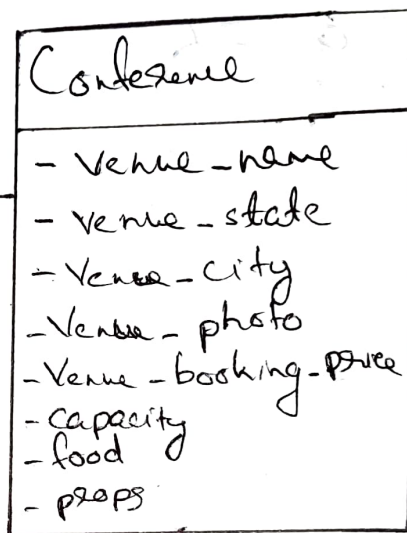 Conference
- Venue_name
- venue_state
- Venue_city
- Venue_photo
- Venue_booking_price
- capacity
- food
- props